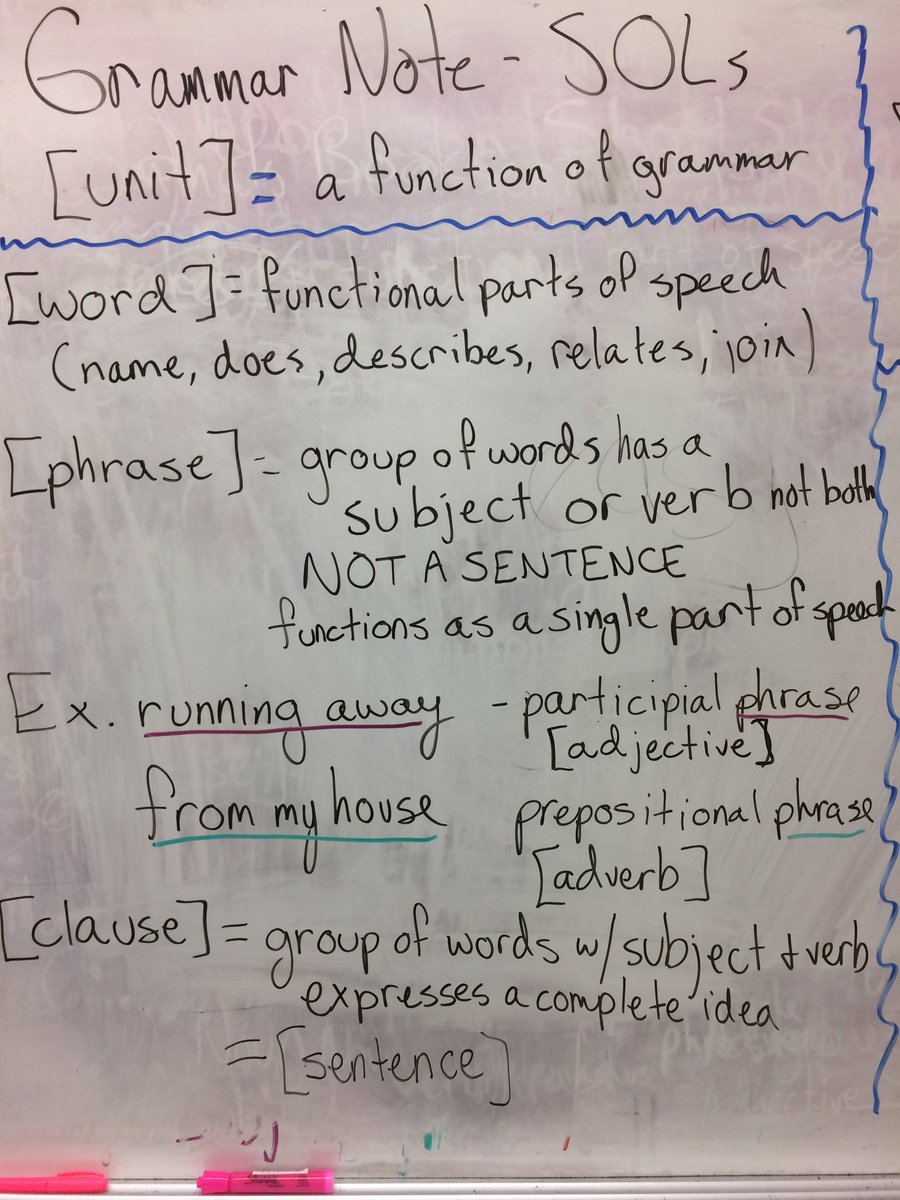 Grammar Note - SOLs
[unit] = a function of grammar
[word] = functional parts of speech
(name, does, describes, relates, join)
[phrase] = group of words has a
subject or verb not both
NOT A SENTENCE
functions as a single part of speech
Ex. running away - participial phrase
[adjective]
from my house prepositional phrase
[adverb]
[clause] = group of words w/ subject + verb
expresses a complete idea
= [sentence]